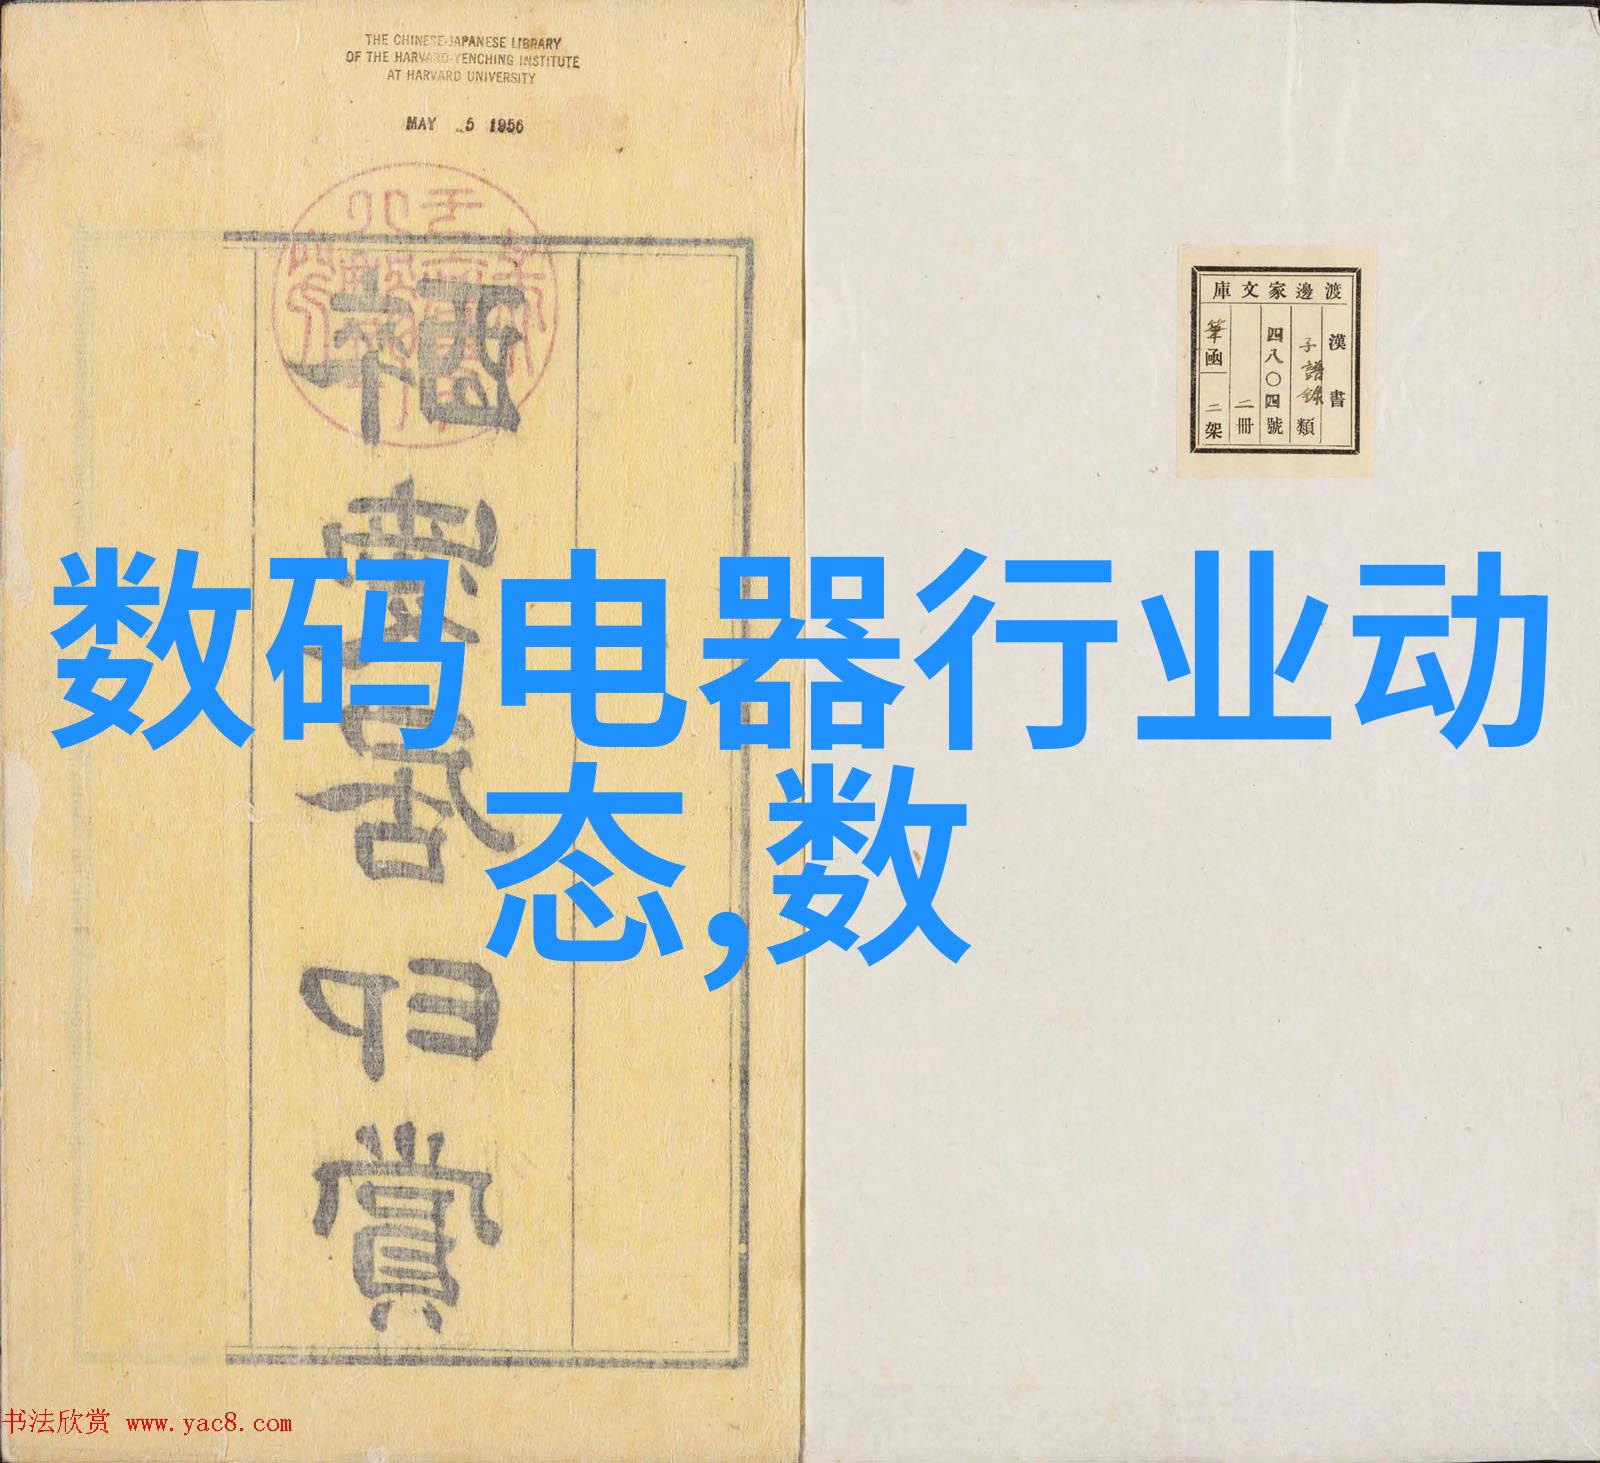 THE CHINESE-JAPANESE LIBRARY
OF THE HARVARD-YENCHING INSTITUTE
AT HARVARD UNIVERSITY
MAY 5 1956
渡邊家文庫
漢書
子譜錄類
四八〇四號
二冊
筆函二架
居印賞
数码电器行业动
态,数
书法欣赏 www.yac8.com